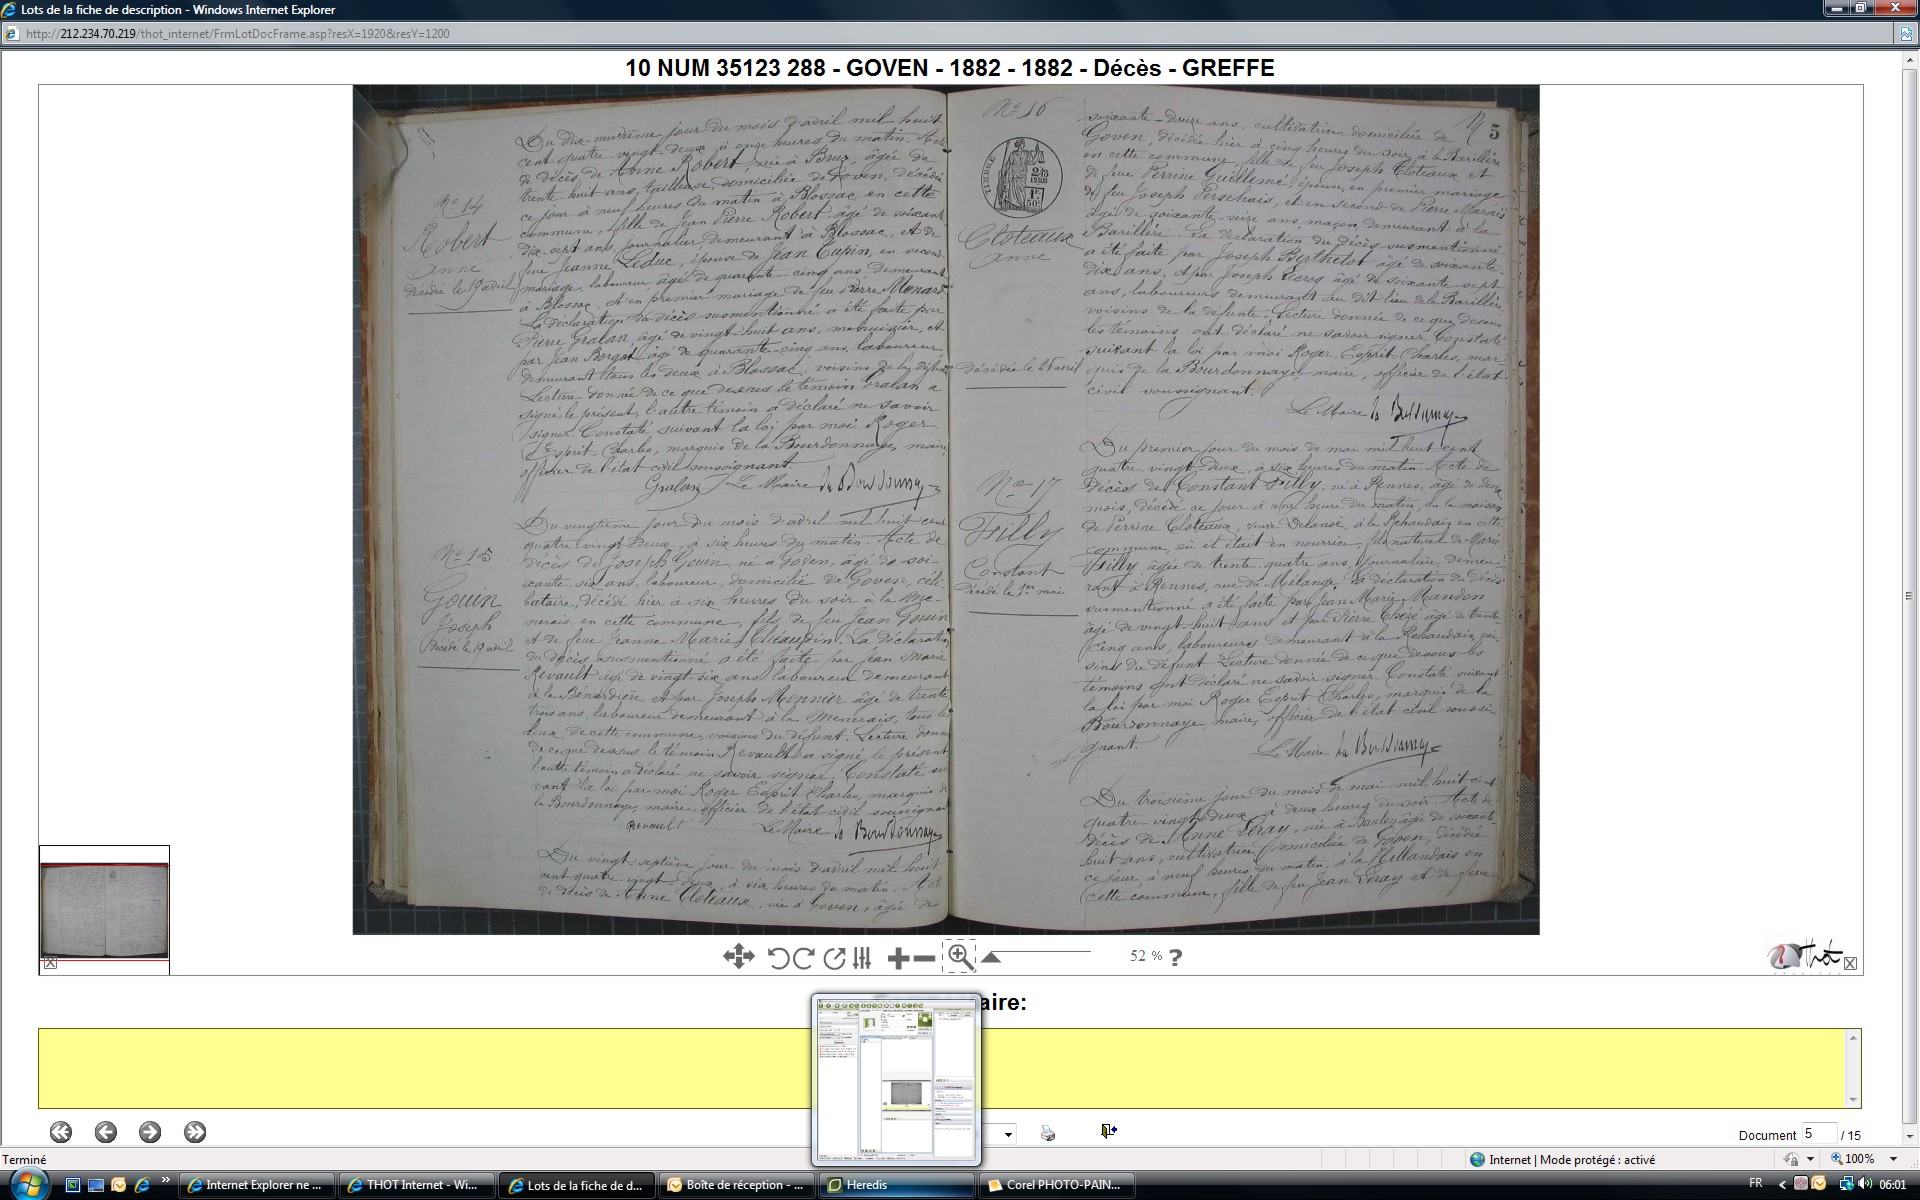 Lots de la fiche de description - Windows Internet Explorer
http://212.234.70.219/thot_internet/FrmLotDocFrame.asp?resX=1920&resY=1200
10 NUM 35123 288 - GOVEN - 1882 - 1882 - Décès - GREFFE
No 14
Robert
Anne
décédée le 19 avril
Du dix-neuvième jour du mois d'avril mil huit
cent quatre-vingt-deux, à onze heures du matin. Acte
de décès de Anne Robert née à Bruz, âgée de
trente huit ans, tailleuse, domiciliée de Goven, décédée
ce jour à neuf heures du matin à Blossac en cette
commune, fille de Jean Pierre Robert âgé de soixante
dix-sept ans, journalier, demeurant à Blossac, et de
feue Jeanne Leduc, épouse de Jean Cupin, en second
mariage, laboureur âgé de quarante cinq ans demeurant
à Blossac, et en premier mariage de feu Pierre Menard
La déclaration du décès susmentionné a été faite par
Pierre Gralan âgé de vingt-huit ans, menuisier, et
par Jean Borgat âgé de quarante-cinq ans, laboureur
demeurant tous les deux à Blossac, voisins de la défunte
Lecture donnée de ce que dessus le témoin Gralan a
signé le présent, l'autre témoin a déclaré ne savoir
signer. Constaté suivant la loi par moi Roger
Esprit Charles, marquis de la Bourdonnaye, maire,
officier de l'état civil soussignant.
Gralan Le Maire de Bourdonnaye
No 15
Gouin
Joseph
Décédé le 19 avril
Du vingtième jour du mois d'avril mil huit cent
quatre-vingt-deux, à six heures du matin. Acte de
décès de Joseph Gouin, né à Goven, âgé de soi-
xante six ans, laboureur, domicilié de Goven, céli-
bataire, décédé hier à six heures du soir à la Me-
nerais en cette commune, fils de feu Jean Gouin
et de feue Jeanne Marie. La déclaration
du décès susmentionné a été faite par Jean Marie
Revault âgé de vingt-six ans laboureur demeurant
à la Bénardière et par Joseph Monnier âgé de trente
trois ans, laboureur demeurant à la Menerais, tous les
deux de cette commune, voisins du défunt. Lecture donnée
de ce que dessus le témoin Revault a signé le présent
l'autre témoin a déclaré ne savoir signer. Constaté sui
vant la loi par moi Roger Esprit Charles, marquis de
la Bourdonnaye, maire, officier de l'état civil soussignant
Revault Le Maire de Bourdonnaye
Du vingt septième jour du mois d'avril mil huit
cent quatre-vingt-deux, à six heures du matin. Acte
de décès de Anne Cloteaux, née à Goven, âgée de
No 16
TIMBRE
Cloteaux
Anne
décédée le 26 avril
5
soixante-douze ans, cultivatrice, domiciliée de
Goven, décédée hier à cinq heures du soir à la Barillère
en cette commune, fille de feu Joseph Cloteaux et
de feue Perrine Guillemé, épouse, en premier mariage
de feu Joseph, et en second de Pierre Marais
âgé de soixante-seize ans, maçon, demeurant à la
Barillère. La déclaration du décès susmentionné
a été faite par Joseph Berthelot âgé de soixante-
dix ans, et par Joseph âgé de soixante sept
ans, laboureurs demeurant au dit lieu de la Barillère
voisins de la défunte. Lecture donnée de ce que dessus
les témoins ont déclaré ne savoir signer. Constaté
suivant la loi par moi Roger, Esprit Charles, mar-
quis de la Bourdonnaye, maire, officier de l'état
civil soussignant.
Le Maire de Bourdonnaye
No 17
Filly
Constant
décédé le 1er mai
Du premier jour du mois de mai mil huit cent
quatre vingt-deux, à six heures du matin. Acte de
décès de Constant Filly, né à Rennes, âgé de deux
mois, décédé ce jour à une heure du matin, en la maison
de Perrine Cloteaux, veuve, à la Rehaudais en cette
commune, où il était en nourrice, fils naturel de Marie
Filly âgée de trente quatre ans, journalière, demeu-
rant à Rennes, rue du Mélange, la déclaration du décès
susmentionné a été faite par Jean Marie Mandon
âgé de vingt-huit ans et par Pierre âgé de trente
cinq ans, laboureurs demeurant à la Rehaudais, voi-
sins du défunt. Lecture donnée de ce que dessus les
témoins ont déclaré ne savoir signer. Constaté suivant
la loi par moi Roger Esprit Charles, marquis de la
Bourdonnaye, maire, officier de l'état civil soussi-
gnant.
Le Maire de Bourdonnaye
Du troisième jour du mois de mai mil huit cent
quatre vingt-deux, à deux heures du soir. Acte de
décès de Anne Leray, née à Baulon, âgée de soixante
huit ans, cultivatrice, domiciliée de Goven, décédée
ce jour, à neuf heures du matin, à la Hillandais en
cette commune, fille de feu Jean Leray et de feue
52 % ?
Thot
aire:
Document 5 / 15
Terminé
Internet | Mode protégé : activé
100%
Internet Explorer ne ...
THOT Internet - Wi...
Lots de la fiche de d...
Boîte de réception - ...
Heredis
Corel PHOTO-PAIN...
FR
06:01